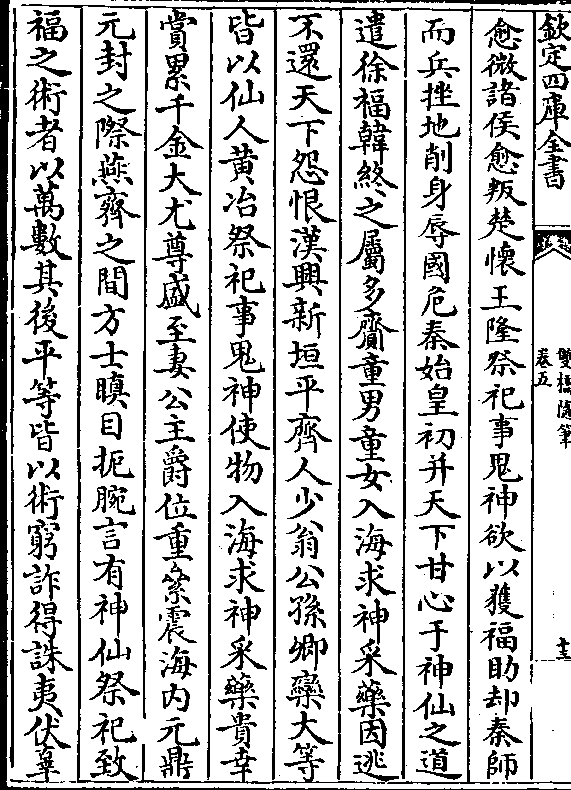 欽定四庫全書
雙橋隨筆
卷五
十三
愈微諸侯愈叛楚懷王隆祭祀事鬼神欲以獲福助却秦師
而兵挫地削身辱國危秦始皇初并天下甘心于神仙之道
遣徐福韓終之屬多齎童男童女入海求神采藥因逃
不還天下怨恨漢興新垣平齊人少翁公孫卿欒大等
皆以仙人黃冶祭祀事鬼神使物入海求神采藥貴幸
賞累千金大尤尊盛至妻公主爵位重絫震海內元鼎
元封之際燕齊之間方士瞋目扼腕言有神仙祭祀致
福之術者以萬數其後平等皆以術窮詐得誅夷伏辜